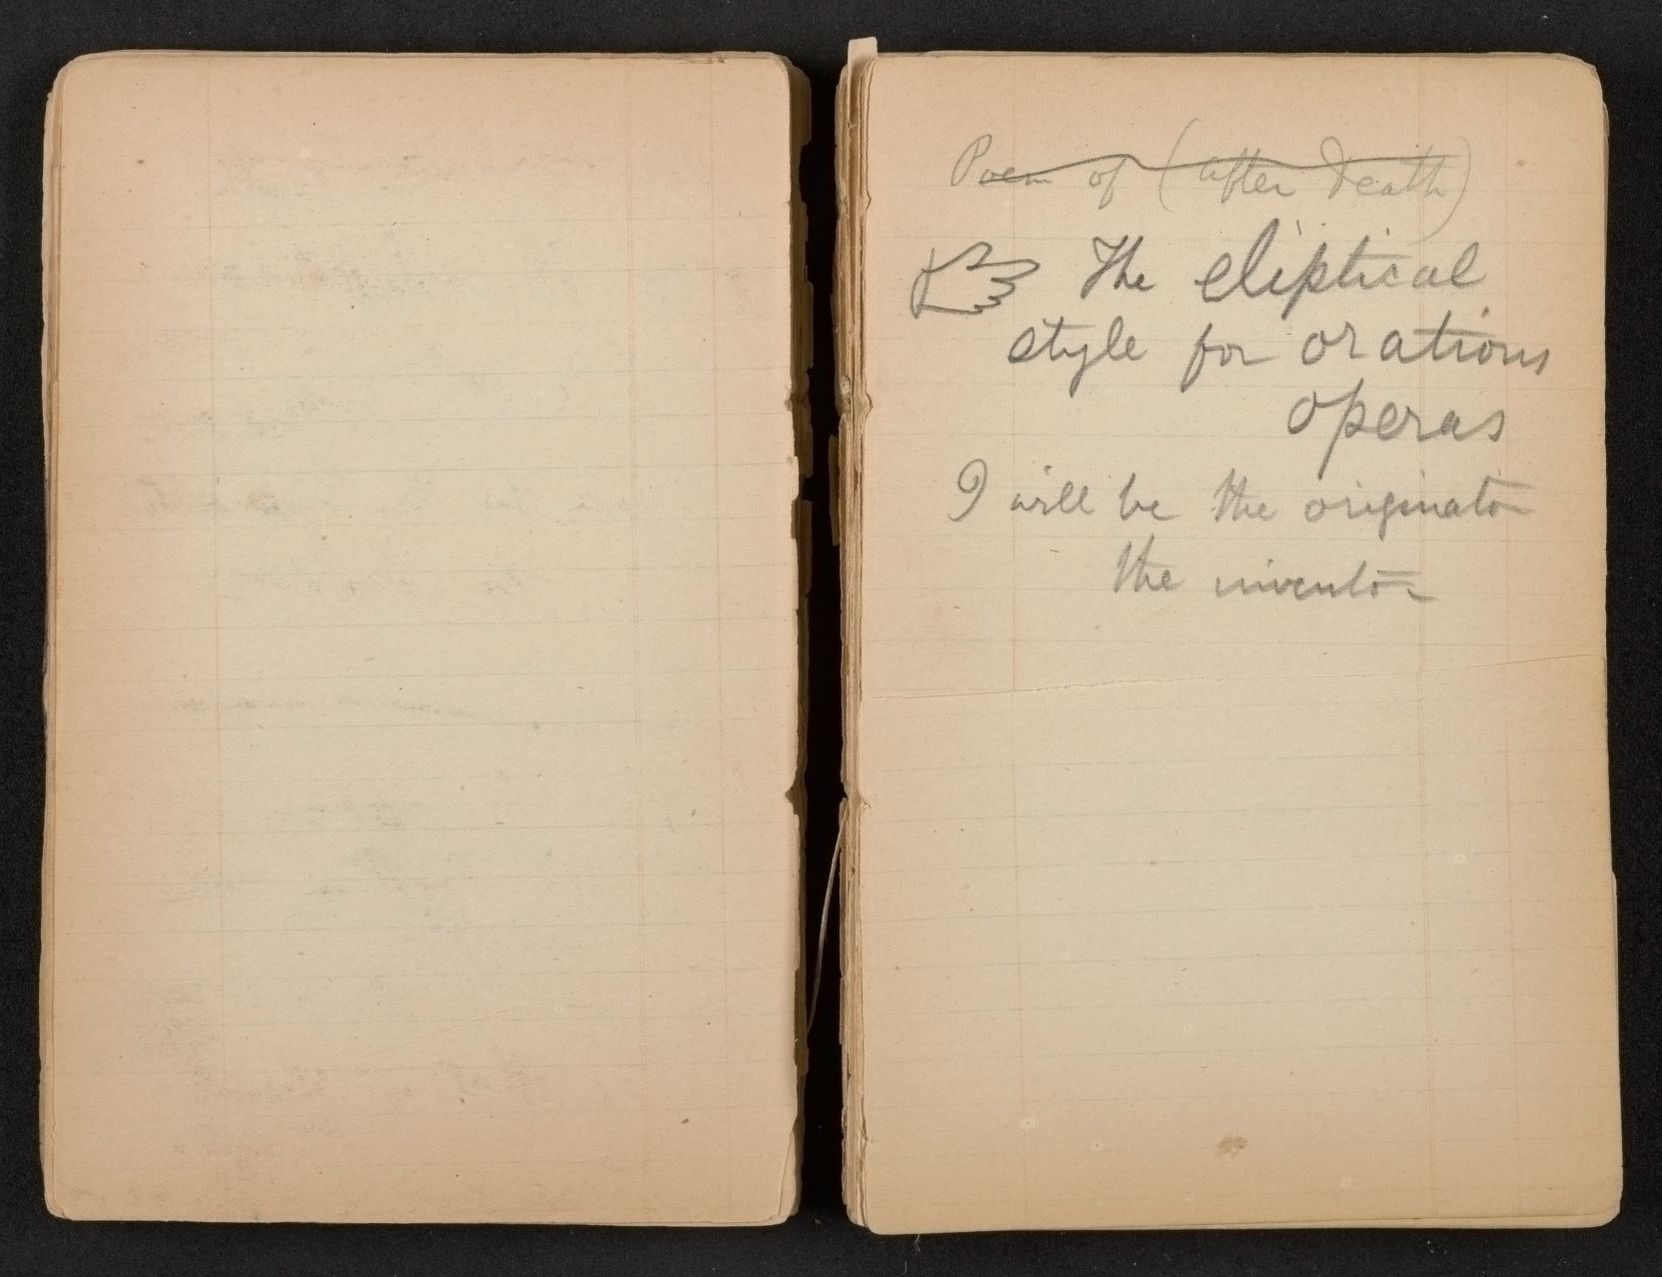 Poem of (after Death)
The eliptical
style for orations
operas
I will be the originator
the inventor